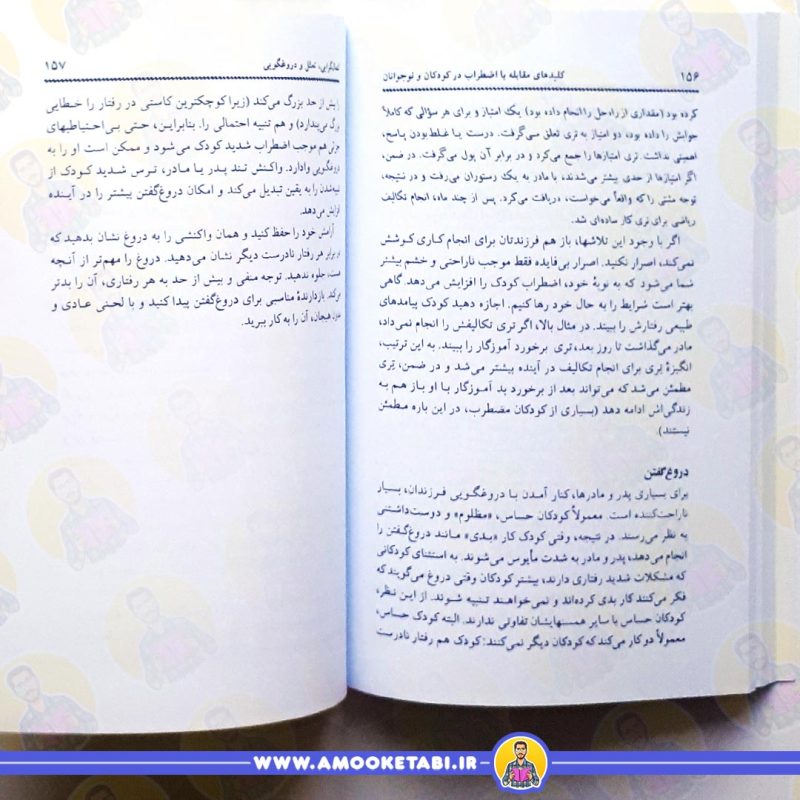 ۱۵۶ کلیدهای مقابله با اضطراب در کودکان و نوجوانان
کرده بود (مقداری از راه‌حل را انجام داده بود) یک امتیاز و برای هر سؤالی که کاملاً
جوابش را داده بود، دو امتیاز به تری تعلق می‌گرفت. درست یا غلط‌بودن پاسخ،
اهمیتی نداشت. تری امتیازها را جمع می‌کرد و در برابر آن پول می‌گرفت. در ضمن،
اگر امتیازها از حدی بیشتر می‌شدند، با مادر به یک رستوران می‌رفت و در نتیجه،
توجه مثبتی را که واقعاً می‌خواست، دریافت می‌کرد. پس از چند ماه، انجام تکالیف
ریاضی برای تری کار ساده‌ای شد.
اگر با وجود این تلاشها، باز هم فرزندتان برای انجام کاری کوشش
نمی‌کند، اصرار نکنید. اصرار بی‌فایده فقط موجب ناراحتی و خشم بیشتر
شما می‌شود که به نوبهٔ خود، اضطراب کودک را افزایش می‌دهد. گاهی
بهتر است شرایط را به حال خود رها کنیم. اجازه دهید کودک پیامدهای
طبیعی رفتارش را ببیند. در مثال بالا، اگر تری تکالیفش را انجام نمی‌داد،
مادر می‌گذاشت تا روز بعد، تری برخورد آموزگار را ببیند. به این ترتیب،
انگیزهٔ تری برای انجام تکالیف در آینده بیشتر می‌شد و در ضمن، تری
مطمئن می‌شد که می‌تواند بعد از برخورد بد آموزگار با او باز هم به
زندگی‌اش ادامه دهد (بسیاری از کودکان مضطرب، در این باره مطمئن
نیستند)
دروغ‌گفتن
برای بسیاری پدر و مادرها، کنار آمدن با دروغگویی فرزندان، بسیار
ناراحت‌کننده است. معمولاً کودکان حساس، «مظلوم» و دوست‌داشتنی
به نظر می‌رسند. در نتیجه، وقتی کودک کار «بدی» مانند دروغ‌گفتن را
انجام می‌دهد، پدر و مادر به شدت مأیوس می‌شوند. به استثنای کودکانی
که مشکلات شدید رفتاری دارند، بیشتر کودکان وقتی دروغ می‌گویند که
فکر می‌کنند کار بدی کرده‌اند و نمی‌خواهند تنبیه شوند. از این نظر،
کودکان حساس با سایر همسن‌هایشان تفاوتی ندارند. البته کودک حساس،
معمولاً دو کار می‌کند که کودکان دیگر نمی‌کنند: کودک هم رفتار نادرست
تعلل و دروغگویی ۱۵۷
را بیش از حد بزرگ می‌کند (زیرا کوچکترین کاستی در رفتار را خطایی
بزرگ می‌پندارد) و هم تنبیه احتمالی را. بنابراین، حتی بی‌احتیاطیهای
جزئی هم موجب اضطراب شدید کودک می‌شود و ممکن است او را به
دروغگویی وادارد. واکنش تند پدر یا مادر، ترس شدید کودک از
تنبیه‌شدن را به یقین تبدیل می‌کند و امکان دروغ‌گفتن بیشتر را در آینده
افزایش می‌دهد.
آرامش خود را حفظ کنید و همان واکنشی را به دروغ نشان بدهید که
در برابر هر رفتار نادرست دیگر نشان می‌دهید. دروغ را مهم‌تر از آنچه
هست، جلوه ندهید. توجه منفی و بیش از حد به هر رفتاری، آن را بدتر
می‌کند. بازدارندهٔ مناسبی برای دروغ‌گفتن پیدا کنید و با لحنی عادی و
بدون هیجان، آن را به کار ببرید.
WWW.AMOOKETABI.IR